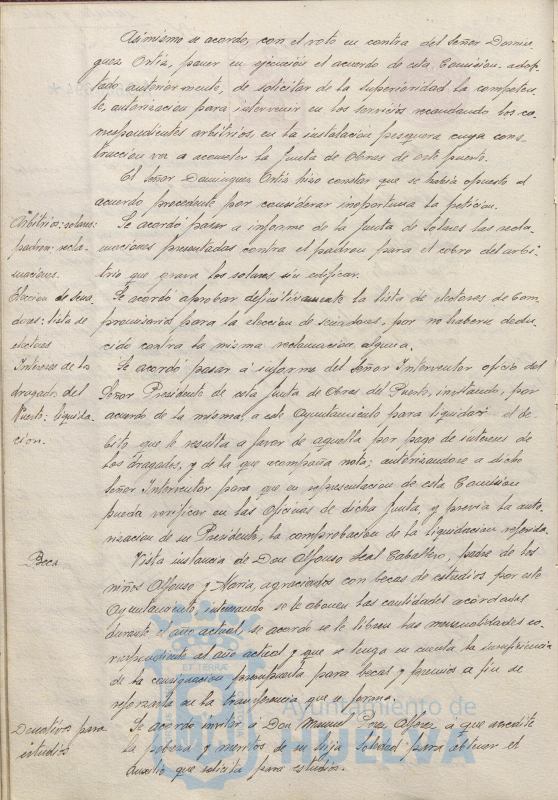 Asimismo se acordó, con el voto en contra del Señor Domin-
guez Ortiz, poner en ejecución el acuerdo de esta Comisión adop-
tado anteriormente, de solicitar de la Superioridad la competen-
te, autorización para intervenir en los servicios recaudando los co-
rrespondientes arbitrios, en la instalación pesquera cuya cons-
trucción va a acometer la Junta de Obras de este puerto.
El Señor Dominguez Ortiz hizo constar que se había opuesto al
acuerdo precedente por considerar inoportuna la petición.
Arbitrios: solares:
padron: recla-
maciones.
Se acordó pasar a informe de la Junta de Solares las recla-
maciones presentadas contra el padrón para el cobro del arbi-
trio que grava los solares sin edificar.
Eleccion de Sena-
dores: lista de
electores
Se acordó aprobar definitivamente la lista de electores de Com-
promisarios para la eleccion de senadores, por no haberse dedu-
cido contra la misma reclamación alguna.
Intereses de los
dragados del
Puerto: liquida-
ción.
Se acordó pasar á informe del Señor Interventor oficio del
Señor Presidente de esta Junta de Obras del Puerto, invitando, por
acuerdo de la misma, a este Ayuntamiento para liquidar el dé-
bito que le resulta a favor de aquella por pago de intereses de
los dragados, y de la que acompaña nota; autorizandose a dicho
Señor Interventor para que en representacion de esta Comision
pueda verificar en las Oficinas de dicha Junta, y previa la auto-
rizacion de su Presidente, la comprobacion de la liquidacion referida.
Beca
Vista instancia de Don Alfonso Leal Caballero, padre de los
niños Alfonso y Maria, agraciados con becas de estudios por este
Ayuntamiento, interesando se le abonen las cantidades acordadas
durante el año actual, se acordo se le libren las mensualidades co-
rrespondiente al año actual y que se tenga en cuenta la insuficiencia
de la consignacion presupuesta para becas y premios a fin de
reforzarla en la transferencia que se forme.
Donativo para
estudios
Se acordó invitar a Don Manuel Perez a que acredite
la pobreza y meritos de su hija Soledad para obtener el
auxilio que solicita para estudios.
Ayuntamiento de
HUELVA